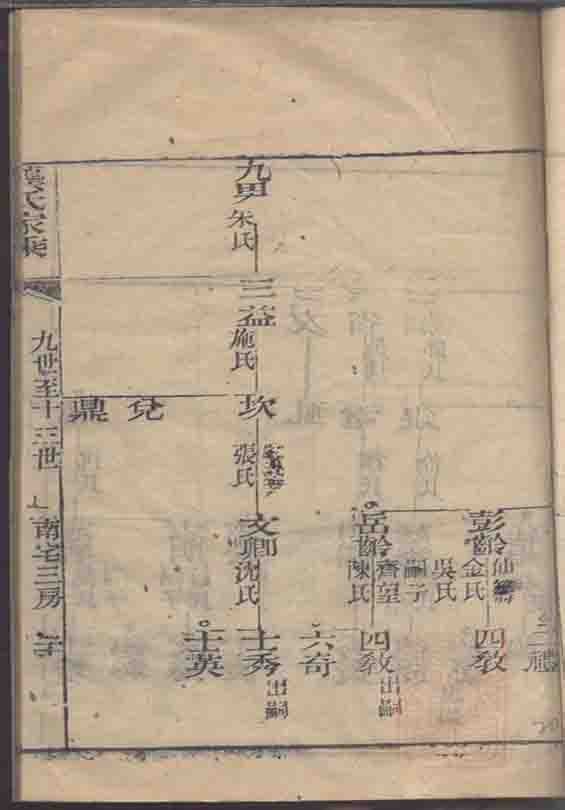 三禮
彭齡
仙籌
金氏
吳氏
四教
岳齡
齊望
嗣子
陳氏
四教
出嗣
六奇
九男
朱氏
三益
施氏
坎
張氏
文卿
沈氏
士秀
出嗣
士英
兌
鼎
龔氏家乘
九世至十三世
南宅三房